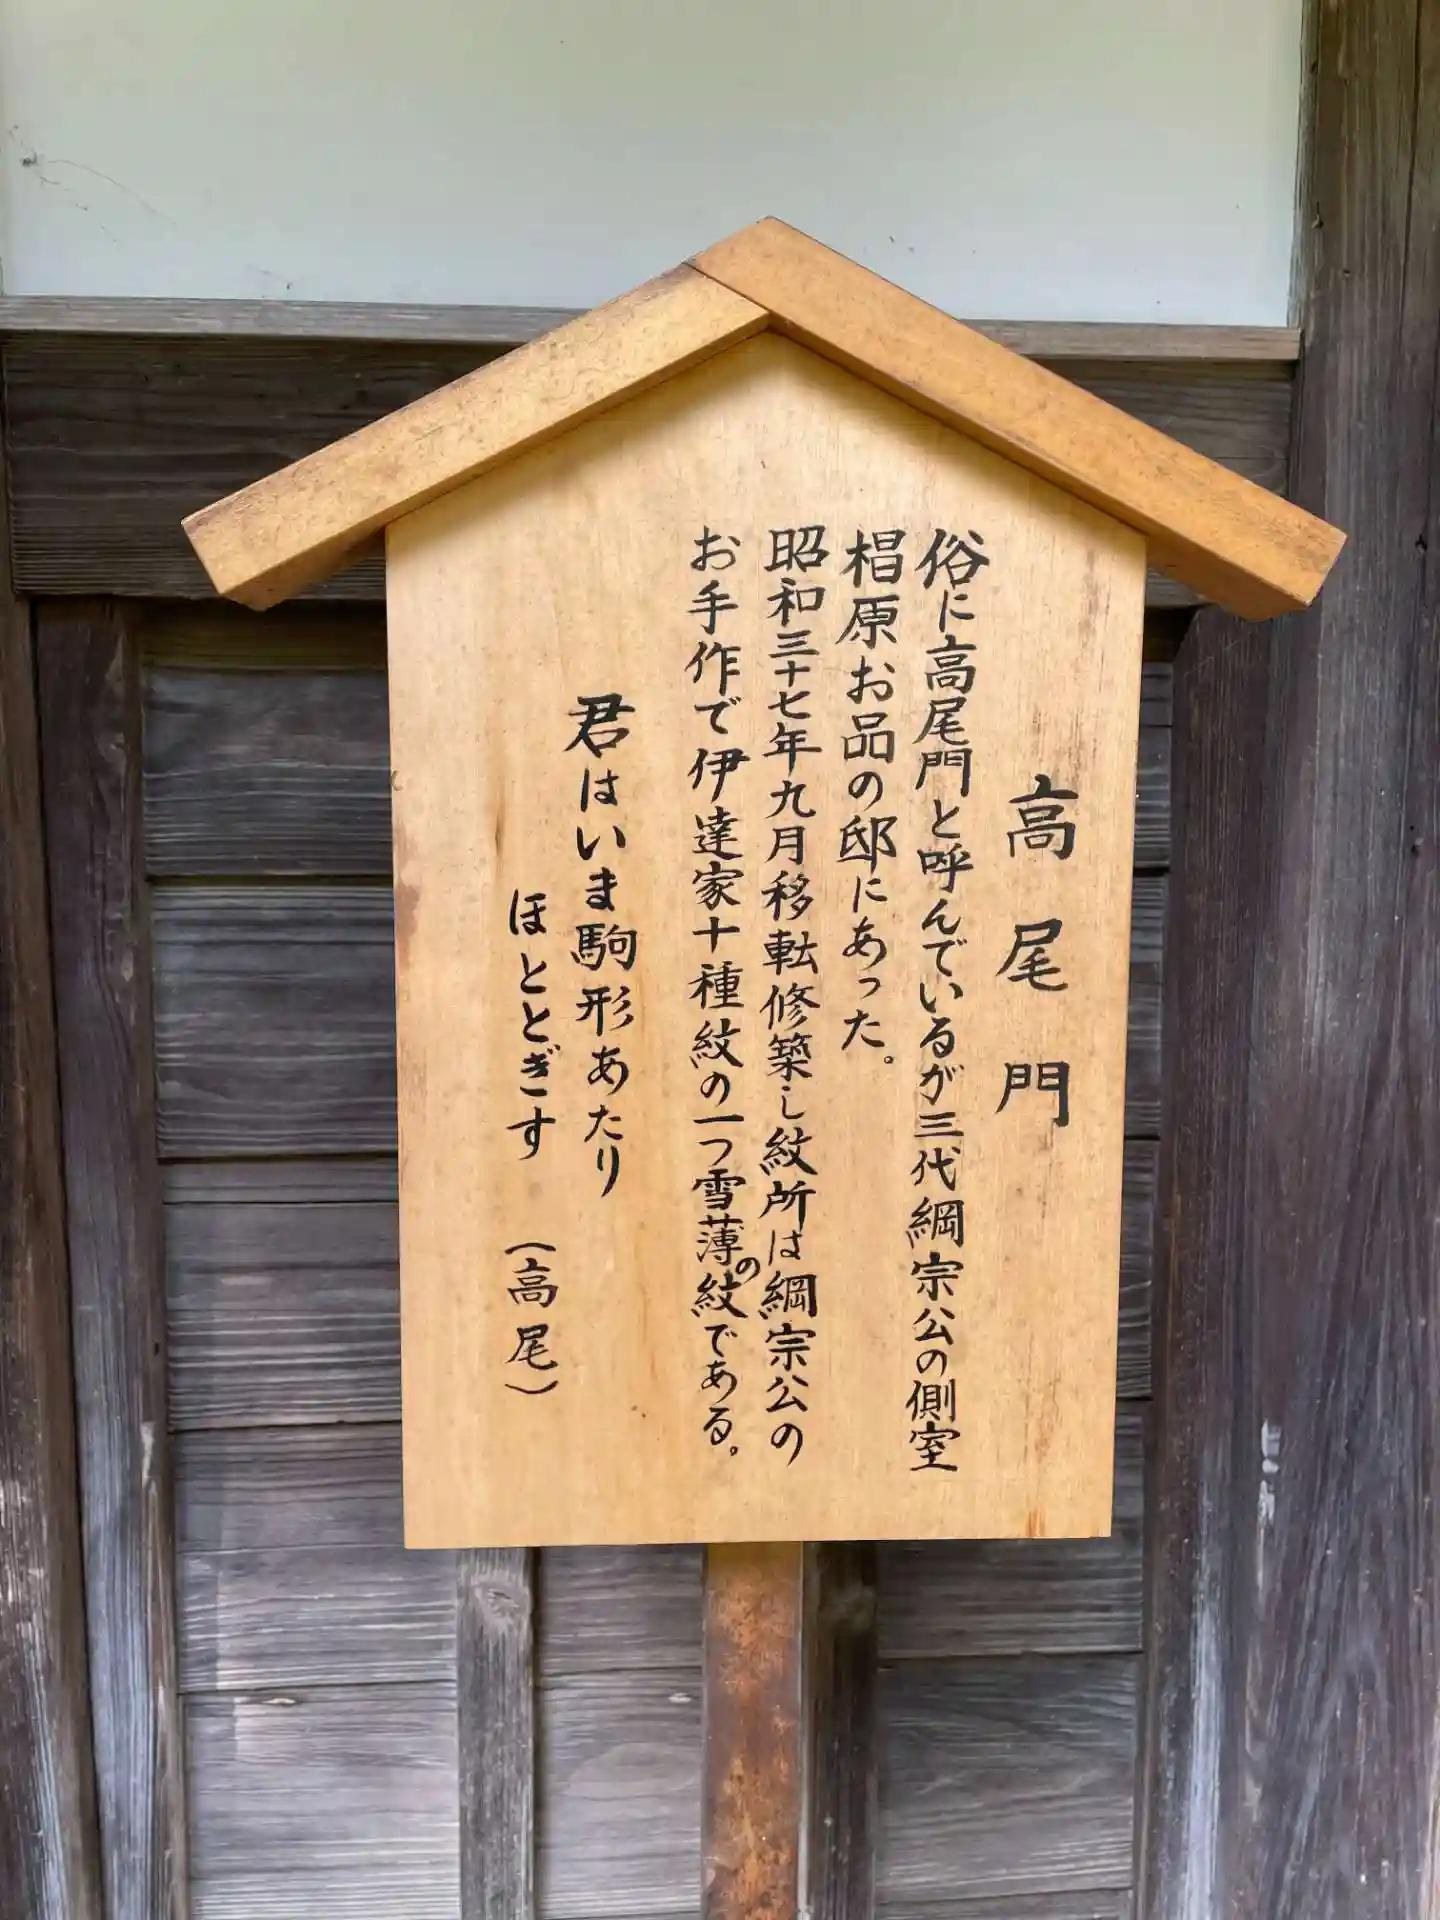 高尾門
俗に高尾門と呼んでいるが三代綱宗公の側室
椙原お品の邸にあった。
昭和三十七年九月移転修築し紋所は綱宗公の
お手作で伊達家十種紋の一つ雪薄の紋である。
君はいま駒形あたり
ほととぎす （高尾）